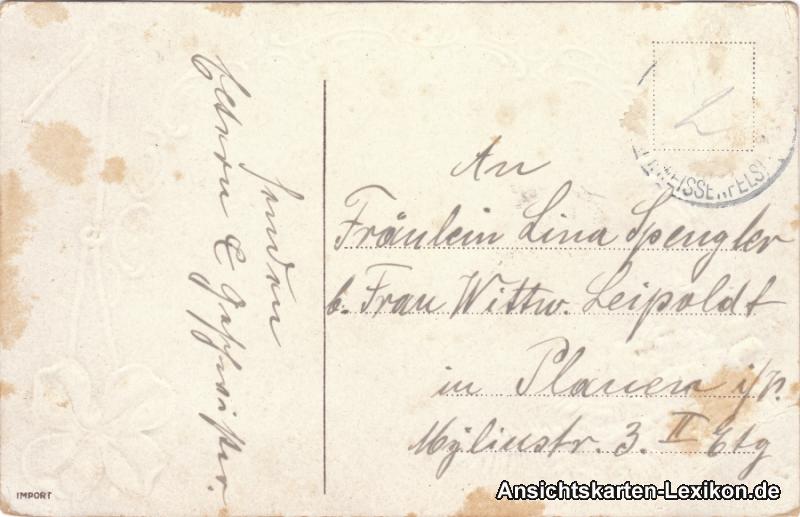 senden
Eltern & Geschwister.
An
Fräulein Lina Spengler
b. Frau Wittw. Leipoldt
in Plauen i/V.
Mylinstr. 3. II Etg
WEISSENFELS
IMPORT
Ansichtskarten-Lexikon.de